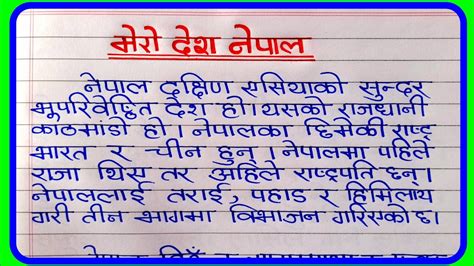 मेरो देश नेपाल
नेपाल दक्षिण एसियाको सुन्दर
भूपरिवेष्ठित देश हो। यसको राजधानी
काठमाडौं हो । नेपालका छिमेकी राष्ट्र
भारत र चीन हुन् । नेपालमा पहिले
राजा थिए तर अहिले राष्ट्रपति छन् ।
नेपाललाई तराई, पहाड र हिमिलाय
गरी तीन भागमा विभाजन गरिएको छ।